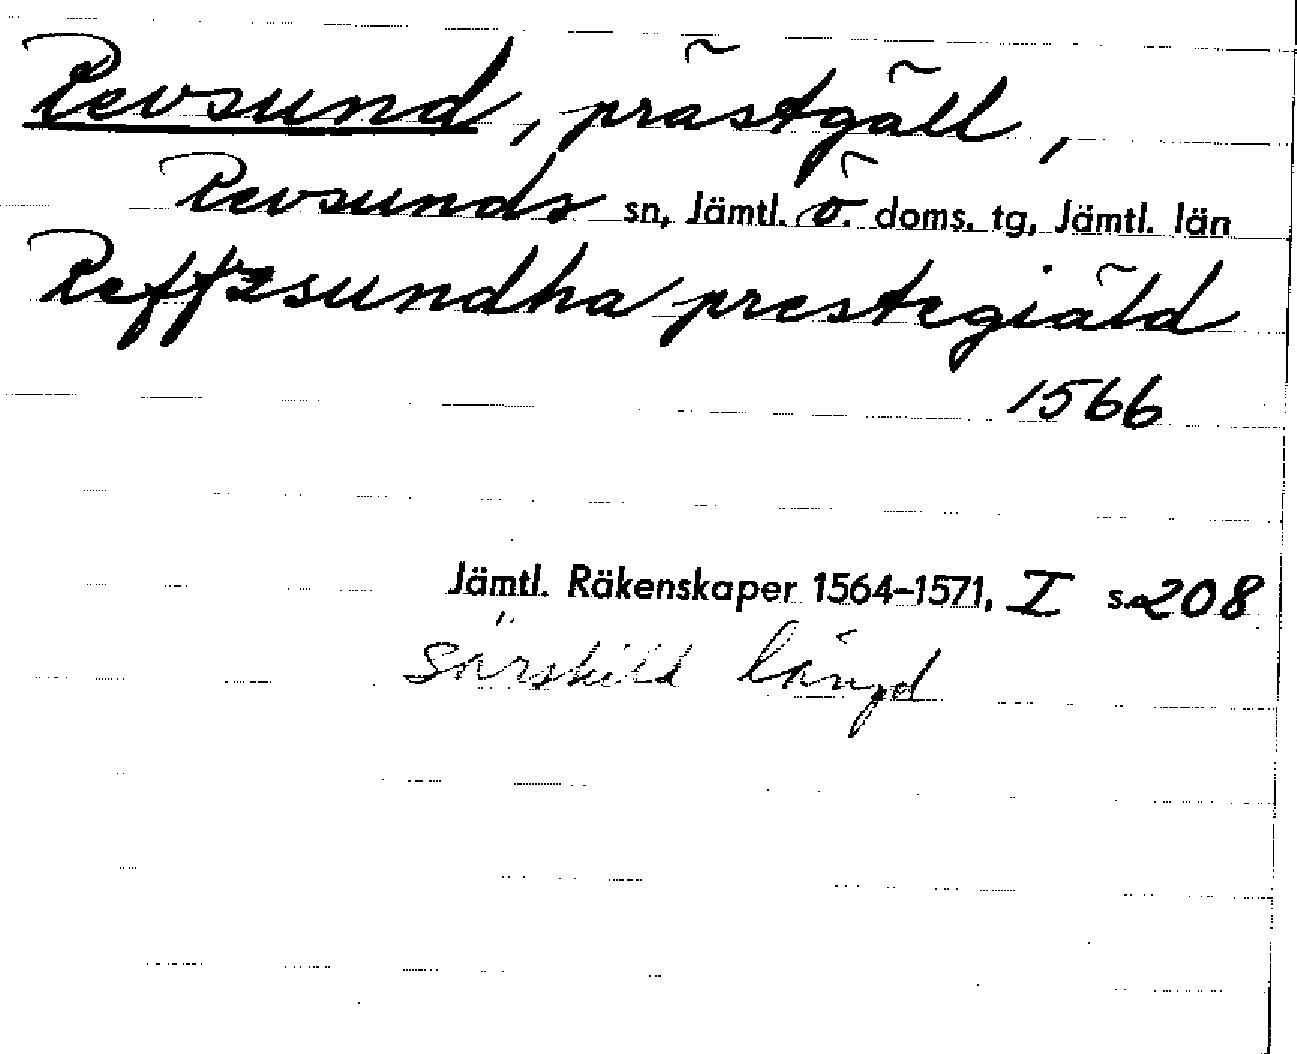 Revsund, prästgäll,
Revsunds sn, Jämtl. ö. doms. tg, Jämtl. län
Reffzsundha prestegiäld
1566
Jämtl. Räkenskaper 1564–1571, I s. 208
särskild längd